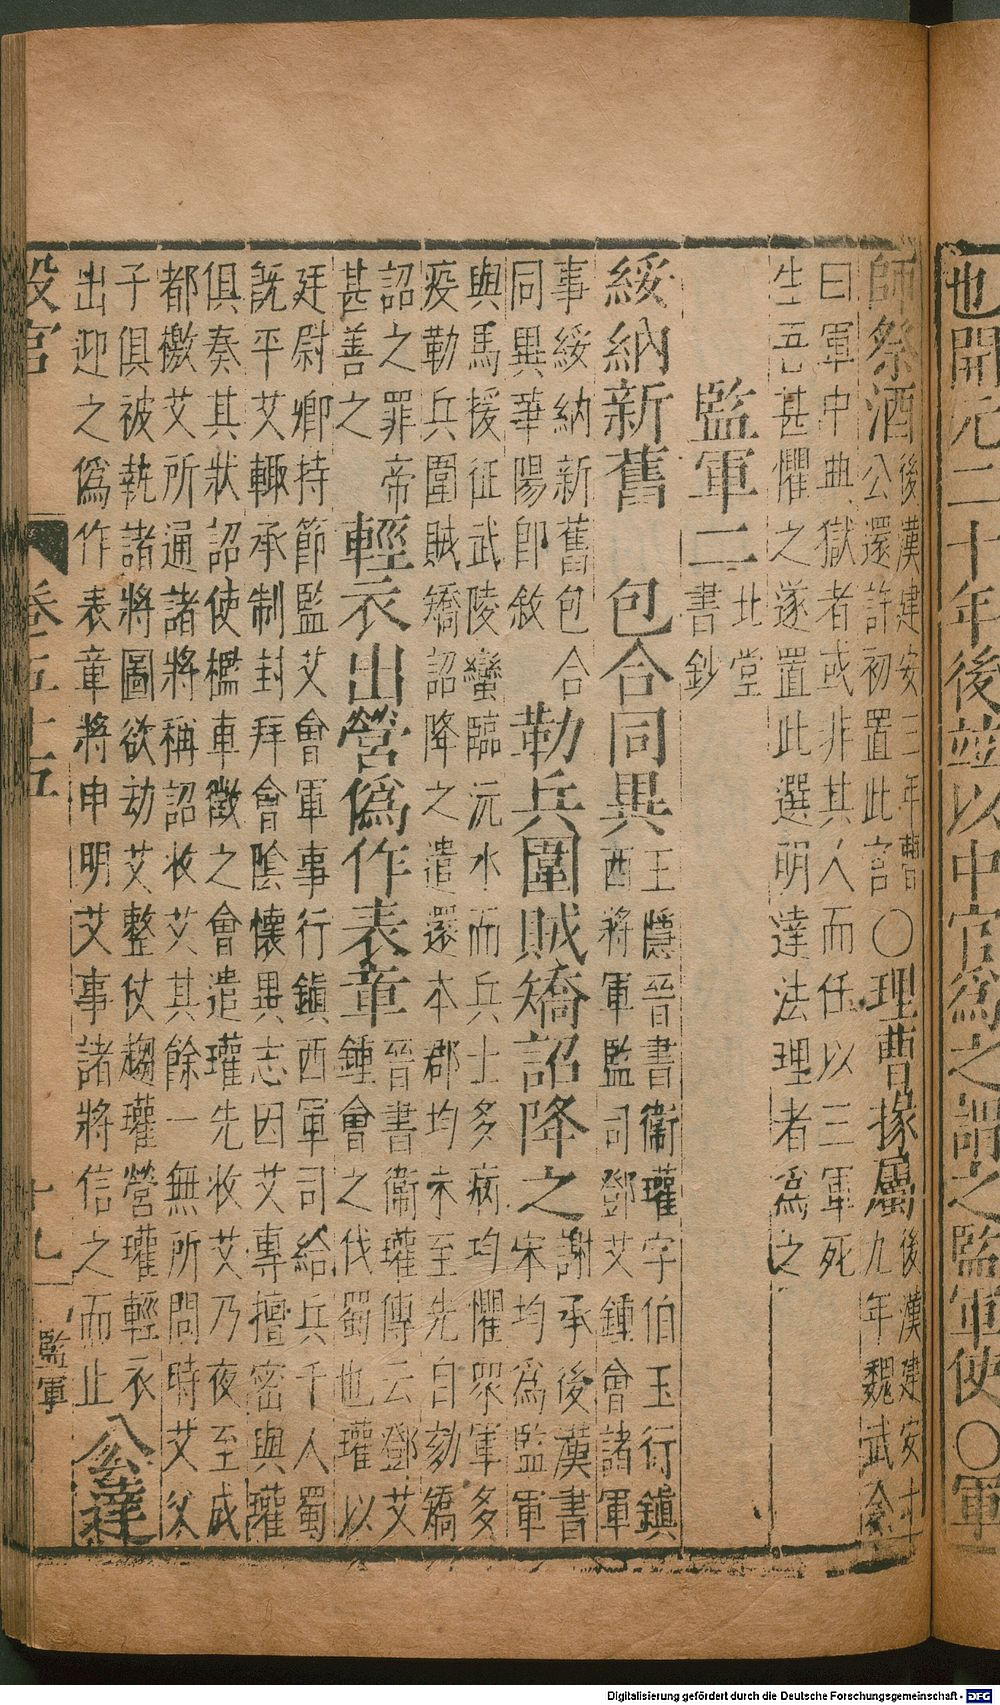 也開元二十年後並以中官爲之謂之監軍使〇軍
師祭酒後漢建安三年曹公還許初置此官〇理曹掾屬後漢建安十九年魏武令
曰軍中典獄者或非其人而任以三軍死
生吾甚懼之遂置此選明達法理者爲之
監軍二北堂書鈔
綏納新舊 包合同異王隱晉書衛瓘字伯玉行鎮西將軍監司鄧艾鍾會諸軍
事綏納新舊包合
同異華陽郎敘 勒兵圍賊矯詔降之謝承後漢書宋均爲監軍
與馬援征武陵蠻臨沅水而兵士多病均懼眾軍多
疫勒兵圍賊矯詔降之遣還本郡均未至先自劾矯
詔之罪帝
甚善之 輕衣出營爲作表章晉書衛瓘傳云鄧艾鍾會之伐蜀也瓘以
廷尉卿持節監艾會軍事行鎮西軍司給兵千人蜀
既平艾輒承制封拜會陰懷異志因艾專擅密與瓘
俱奏其狀詔使檻車徵之會遣瓘先收艾乃夜至成
都檄艾所通諸將稱詔收艾其餘一無所問時艾父
子俱被執諸將圖欲劫艾整仗趨瓘營瓘輕衣
出迎之僞作表章將申明艾事諸將信之而止 公達
設官 卷五十五 十九 監軍
Digitalisierung gefördert durch die Deutsche Forschungsgemeinschaft - DFG